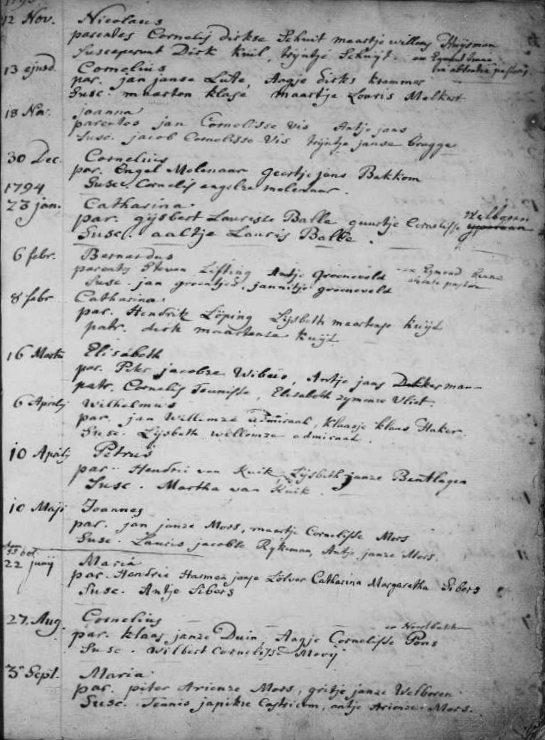 12 Nov. Nicolaus
parentes Cornelis dirkse Schuit maartje willems Huijsman
Susceperunt Dirk Kuil, trijntje Schuijt.
13 ejusd. Cornelius
par. jan janse Lute, Aagje dirks
Susc. maarten klase, maartje Louris Melkert
18 No. Joanna
parentes jan Cornelisse Vis Antje jans
Susc. jacob Cornelisse Vis trijntje janse Brugge
30 Dec. Cornelius
par. Engel Molenaar geertje jans Bakkom
Susc. Cornelis engelse molenaar.
1794
23 jan. Catharina
par. gijsbert Laurisse Balle guurtje Cornelisse
Susc. aaltje Lauris Balle.
6 febr. Bernardus
parentes Steven Lefting Antje Groeneveld
Susc. jan groentjes, jannitje groeneveld
8 febr Catharina
par. Hendrik Löping Lijsbeth maartense kuijt
patr. dirk maartense kuijt
16 Martii Elisabeth
par. Piter jacobse Wibus, Antje jans Dekker
patr. Cornelis Teunisse, Elisabeth zymense Vliet.
6 Aprilij Wilhelmus
par. jan Willemze admiraal, klaasje klaas Haker
Susc. Lijsbeth willemze admiraal.
10 Aprilij Petrus
par. Hendrik van Kuik Lijsbeth janze Bentlagen
Susc. Martha van Kuik.
10 Maji Joannes
par. jan janze Mors, maartje Cornelisse Mors
Susc. Lauris jacobse Rykman, Antje janze Mors.
22 junij Maria
par. Hendric Harmen janse Lölver Catharina Margaretha Sibers
Susc. Antje Sibers
27. Aug. Cornelius
par. klaas janze Duin, Aagje Cornelisse Pons
Susc. Wilbert Cornelisse Mooij
3 Sept. Maria
par. piter Arienze Mors, gritje janze Welboren
Susc. Teunis japikse Castricum, antje Arienze Mors.